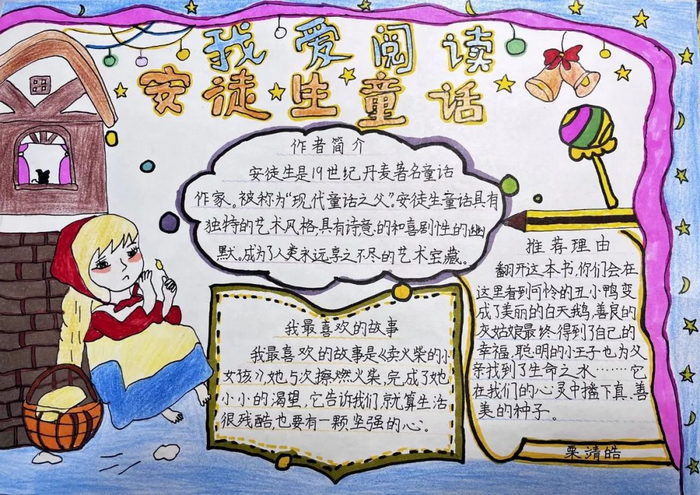 我爱阅读
安徒生童话
作者简介
安徒生是19世纪丹麦著名童话
作家。被称为"现代童话之父"。安徒生童话具有
独特的艺术风格,具有诗意的和喜剧性的幽
默。成为了人类永远享之不尽的艺术宝藏。
我最喜欢的故事
我最喜欢的故事是《卖火柴的小
女孩》她每次擦燃火柴,完成了她
小小的渴望。它告诉我们,就算生活
很残酷也要有一颗坚强的心。
推荐理由
翻开这本书,你们会在
这里看到可怜的丑小鸭变
成了美丽的白天鹅,善良的
灰姑娘最终得到了自己的
幸福,聪明的小王子也为父
亲找到了生命之水………它
在我们的心灵中播下真、善
美的种子。
栗靖皓